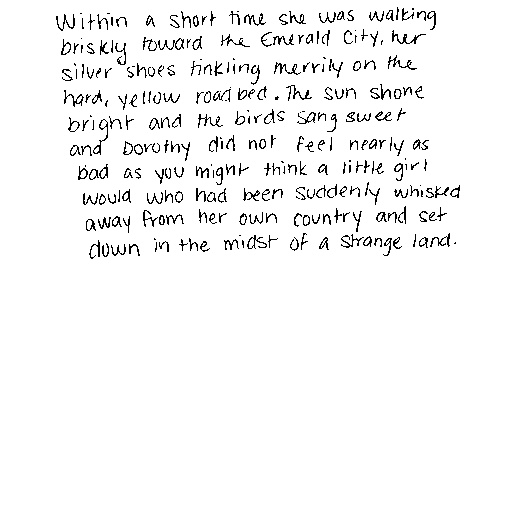 Within a short time she was walking
briskly toward the Emerald City, her
silver shoes tinkling merrily on the
hard, yellow road bed. The sun shone
bright and the birds sang sweet
and Dorothy did not feel nearly as
bad as you might think a little girl
would who had been suddenly whisked
away from her own country and set
down in the midst of a strange land.